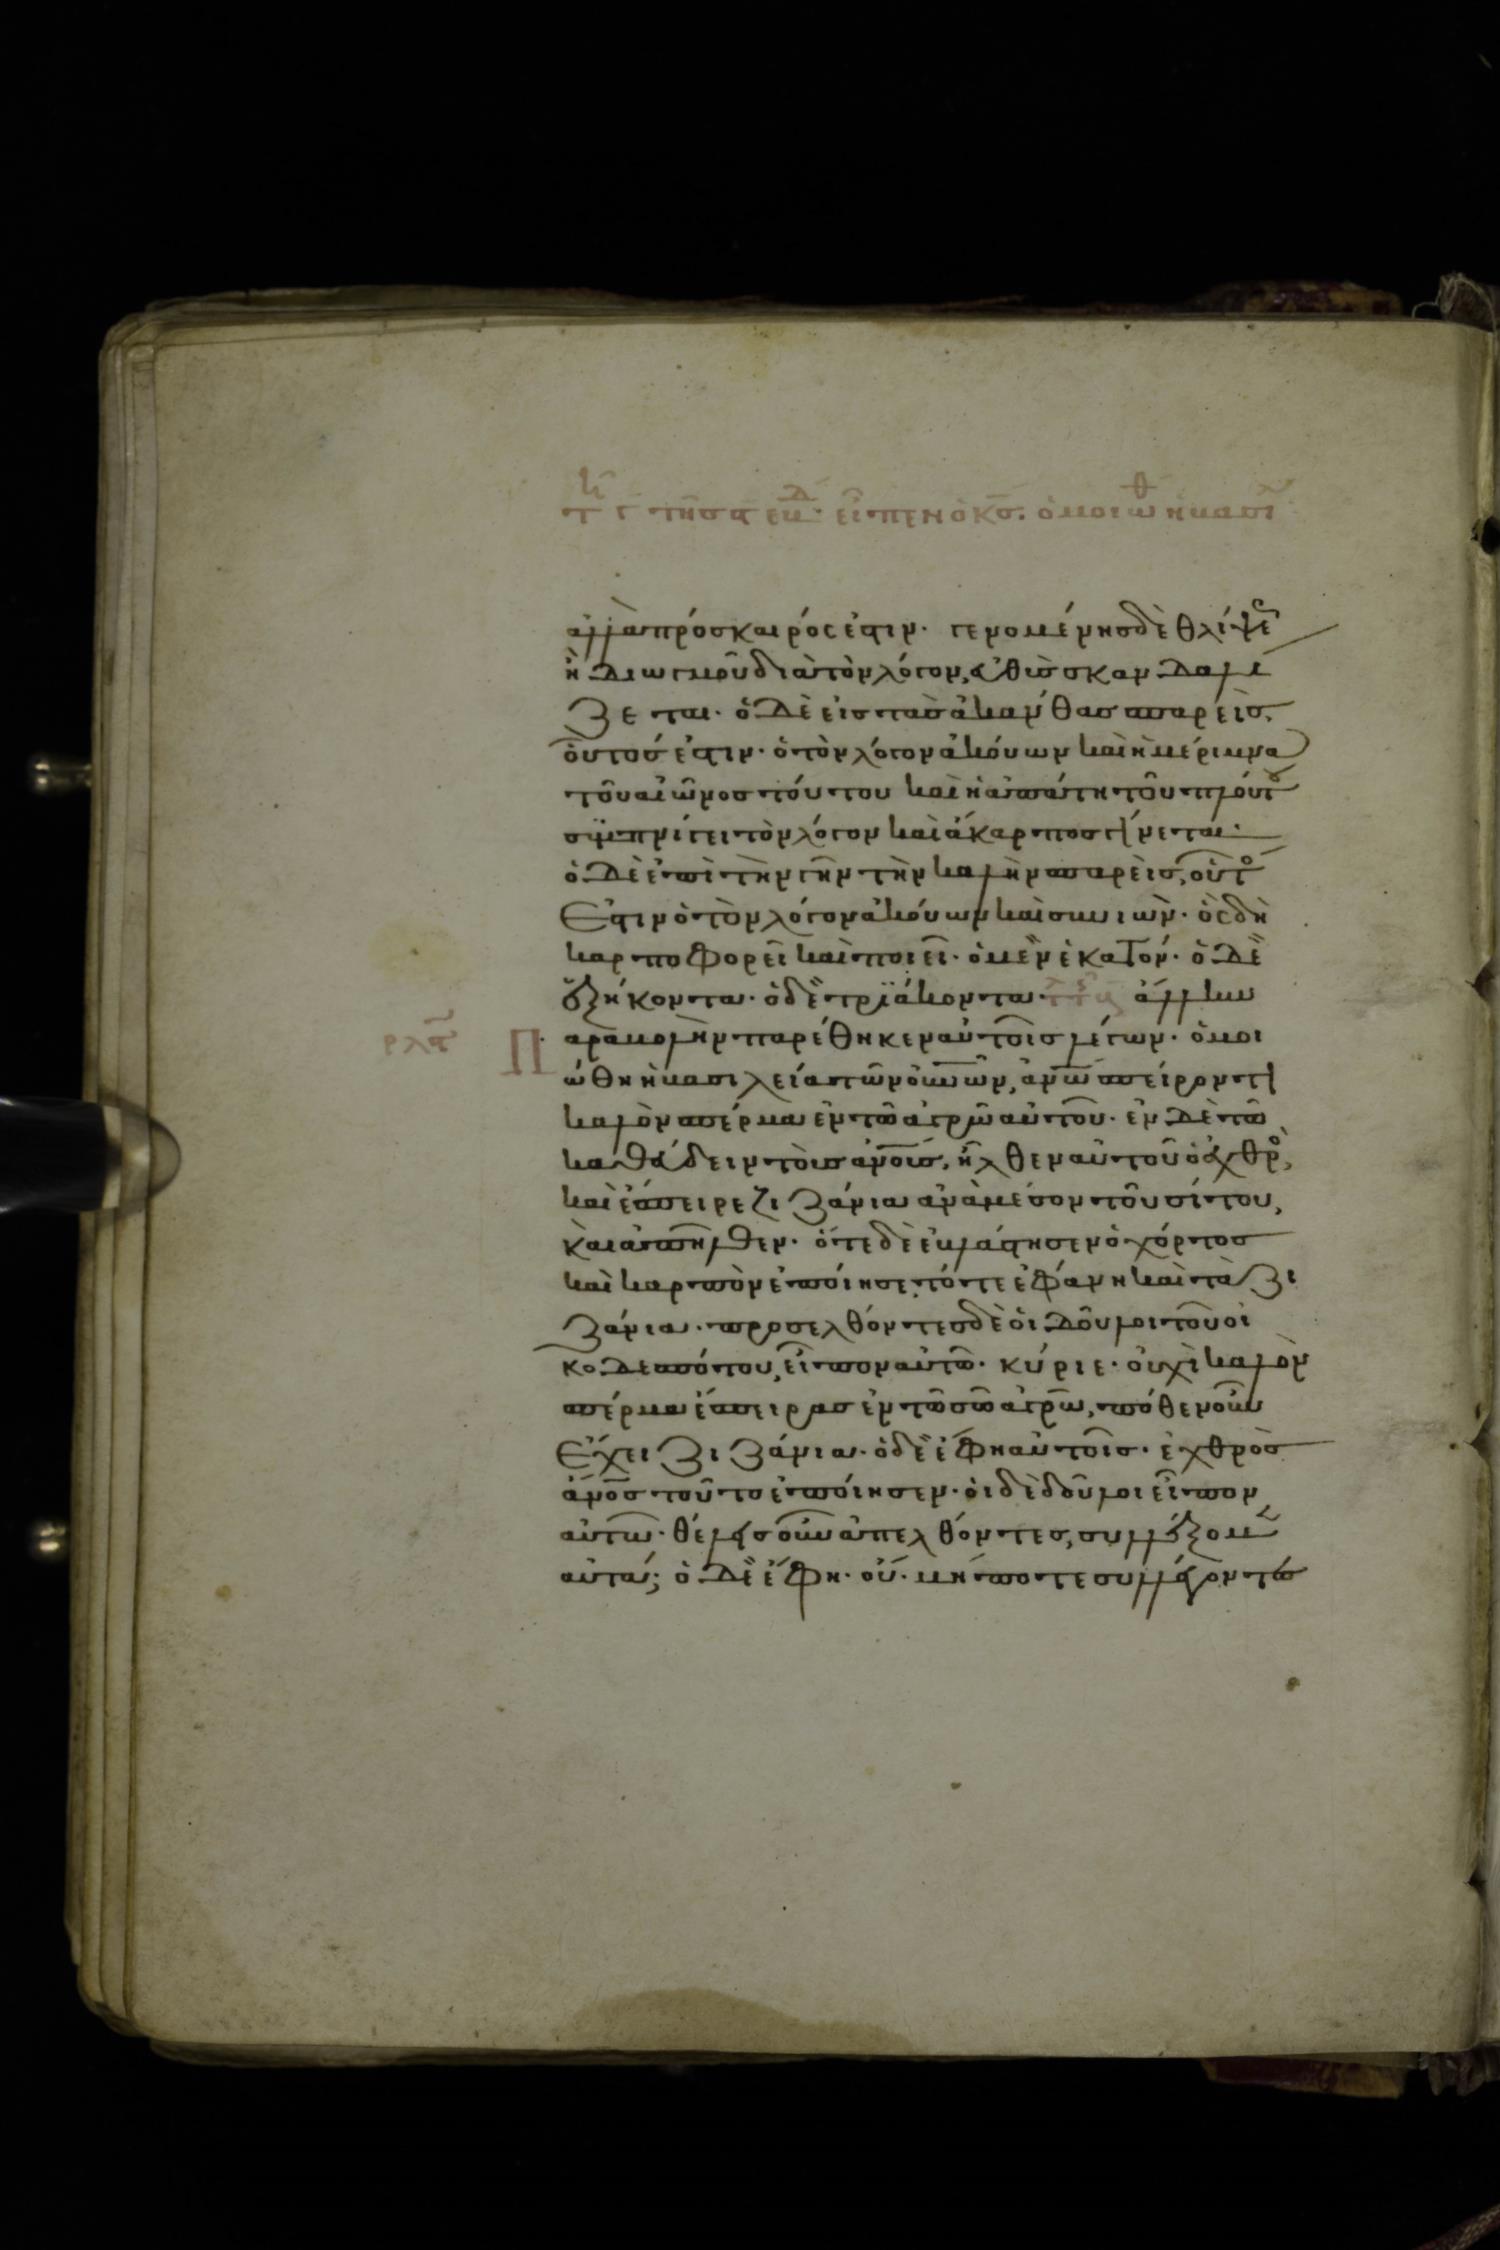 εἶπεν ὁ κς̅. ὁμοιώθ ἡ βασι
ἀλλὰ πρόσκαιρός ἐστιν· γενομένης δὲ θλίψε
ἢ διωγμοῦ διὰ τὸν λόγον, εὐθὺς σκανδαλί
ζεται· ὁ δὲ εἰς τὰς ἀκάνθας σπαρεὶς,
οὗτος ἐστιν· ὁ τὸν λόγον ἀκούων καὶ ἡ μέριμνα
τοῦ αἰῶνος τούτου καὶ ἡ ἀπάτη τοῦ πλούτ
συμπνίγει τὸν λόγον καὶ ἄκαρπος γίνεται·
ὁ δὲ ἐπὶ τὴν γῆν τὴν καλὴν σπαρεὶς, οὗτο
ἐστιν ὁ τὸν λόγον ἀκούων καὶ συνιὼν· ὃς δὴ
καρποφορεῖ καὶ ποιεῖ· ὁ μὲν ἑκατόν· ὁ δὲ
ἑξήκοντα· ὁ δὲ τριάκοντα· ἄλλην
Παραβολὴν παρέθηκεν αὐτοῖς λέγων· ὁμοι
ώθη ἡ βασιλεία τῶν οὐνῶν, ἀνῶ σπείροντι
καλὸν σπέρμα ἐν τῶ ἀγρῶ αὐτοῦ· ἐν δὲ τῶ
καθεύδειν τοὺς ἀνους, ἦλθεν αὐτοῦ ὁ ἐχθρὸ,
καὶ ἔσπειρε ζιζάνια ἀνὰ μέσον τοῦ σίτου,
καὶ ἀπῆλθεν· ὅτε δὲ ἐβλάστησεν ὁ χόρτος
καὶ καρπὸν ἐποίησε, τότε ἐφάνη καὶ τὰ ζι
ζάνια· προσελθόντες δὲ οἱ δοῦλοι τοῦ οἰ
κοδεσπότου, εἶπον αὐτῶ· κύριε· οὐχὶ καλὸν
σπέρμα ἔσπειρας ἐν τῶ σῶ ἀγρῶ, πόθεν οὖν
ἔχει ζιζάνια· ὁ δὲ ἔφη αὐτοῖς· ἐχθρὸς
ἄνος τοῦτο ἐποίησεν· οἱ δὲ δοῦλοι εἶπον
αὐτῶ· θέλεις οὖν ἀπελθόντες, συλλέξομ
αὐτά; ὁ δὲ ἔφη· οὔ· μήποτε συλλέγοντες